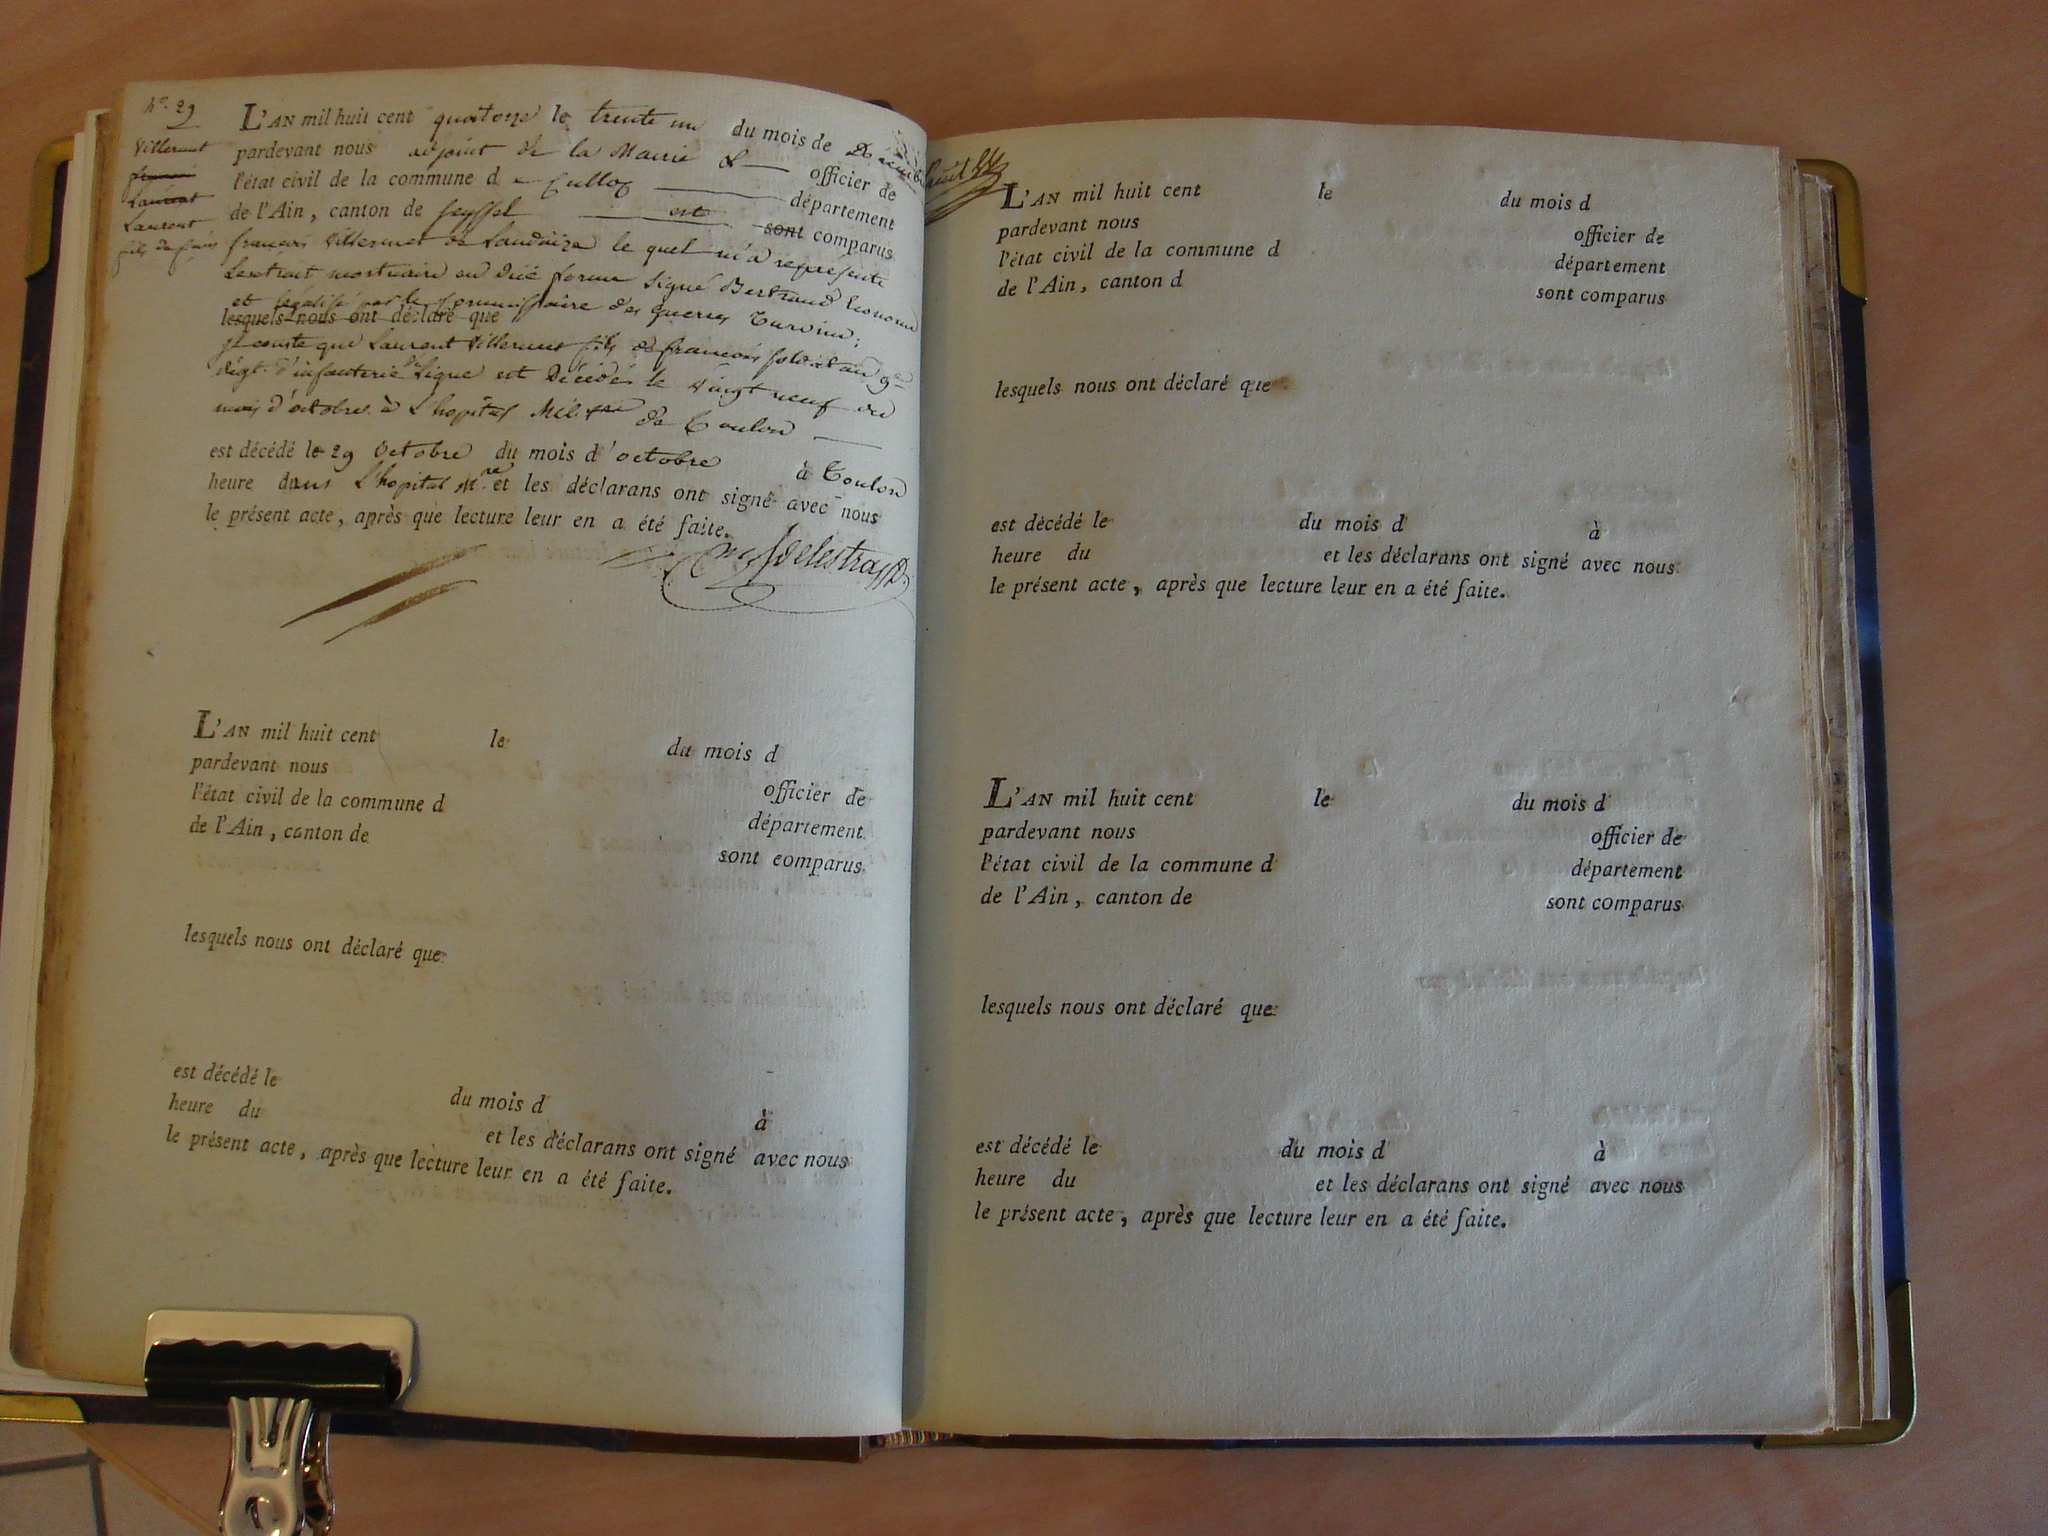 n°. 29
Villermet
françois
Laurent
Laurent
fils de françois
L'AN mil huit cent quatorze le trente un du mois de Décembre
pardevant nous adjoint de la Mairie officier de
l'état civil de la commune de Culloz département
de l'Ain, canton de Seyssel est sont comparus
françois Villermet de Landaize le quel m'a représenté
Lextrait mortuaire en due forme Signé Bertrand Econome
et legalisé par le Commissaire des guerres
lesquels nous ont déclaré que
il conste que Laurent Villermet fils de françois soldat au
régt. d'infanterie de Ligne est Décédés le vingt neuf du
mois d'octobre à L'hopital de Toulon
est décédé le 29 Octobre du mois d'octobre à Toulon
heure dans L'hopital Mre et les déclarans ont signé avec nous
le présent acte, après que lecture leur en a été faite.
L'AN mil huit cent le du mois d
pardevant nous officier de
l'état civil de la commune d département
de l'Ain, canton de sont comparus
lesquels nous ont déclaré que
est décédé le du mois d à
heure du et les déclarans ont signé avec nous
le présent acte, après que lecture leur en a été faite.
L'AN mil huit cent le du mois d
pardevant nous officier de
l'état civil de la commune d département
de l'Ain, canton d sont comparus
lesquels nous ont déclaré que
est décédé le du mois d à
heure du et les déclarans ont signé avec nous
le présent acte, après que lecture leur en a été faite.
L'AN mil huit cent le du mois d
pardevant nous officier de
l'état civil de la commune d département
de l'Ain, canton de sont comparus
lesquels nous ont déclaré que
est décédé le du mois d à
heure du et les déclarans ont signé avec nous
le présent acte, après que lecture leur en a été faite.